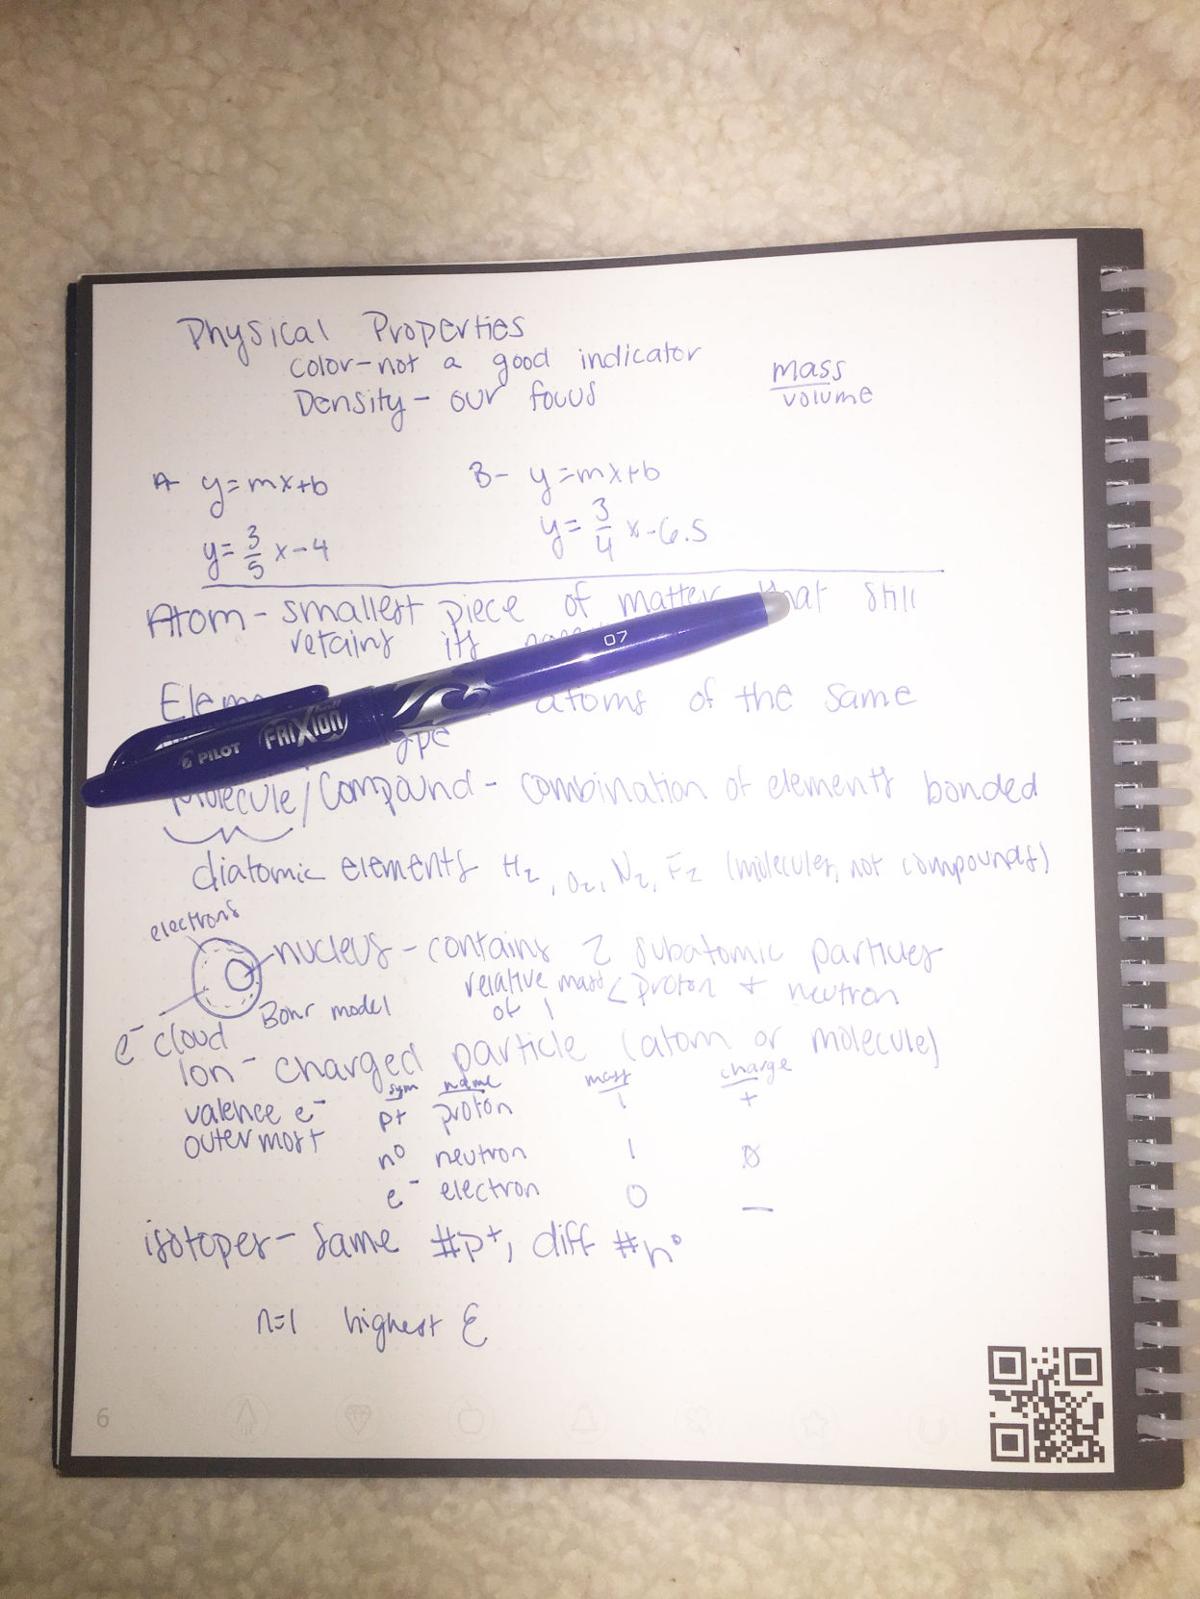 Physical Properties
color-not a good indicator
Density - our focus
mass
volume
A- y=mx+b
B- y=mx+b
y= 3/5 x-4
y= 3/4 x-6.5
Atom - smallest piece of matter that still
retains its
07
atoms of the same
PILOT FRIXION
Molecule/Compound - combination of elements bonded
diatomic elements H₂, O₂, N₂, F₂ (molecules, not compounds)
electrons
nucleus - contains 2 subatomic particles
relative mass < proton + neutron
of 1
Bohr model
e⁻ cloud
Ion - charged particle (atom or molecule)
sym name mass charge
valence e⁻
outermost
p+ proton 1 +
n⁰ neutron 1 0
e⁻ electron 0 −
isotopes - same #p⁺, diff #n⁰
n=1 highest E
6